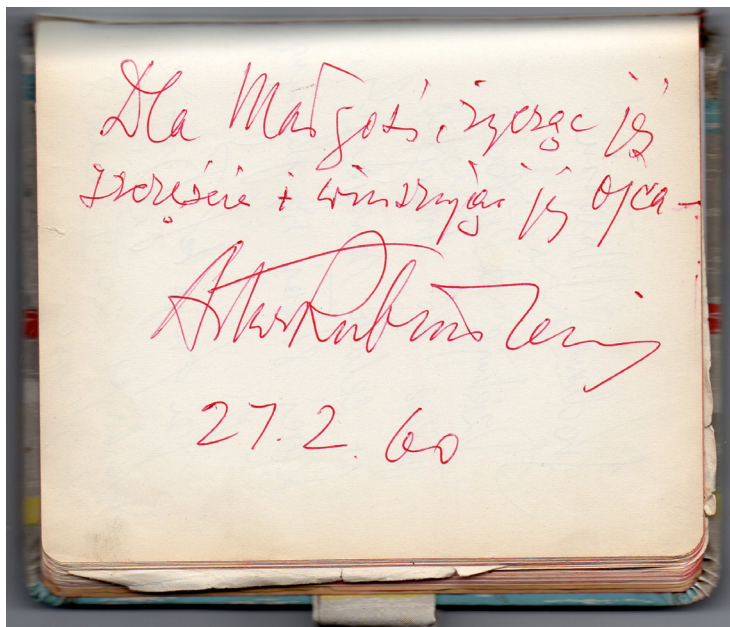 Dla Małgosi, życząc jej
szczęścia i winszując jej ojca —
Artur Rubinstein
27.2.60